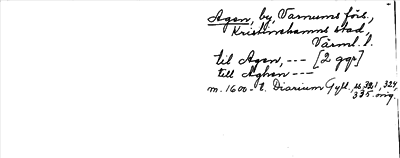 Agen, by, Varnums förs.,
Kristinehamns stad,
Värml. l.
til Agen, --- [2 ggr]
till Aghen ---
m. 1600-t. Diarium Gyll., s. 321, 324,
335. orig.